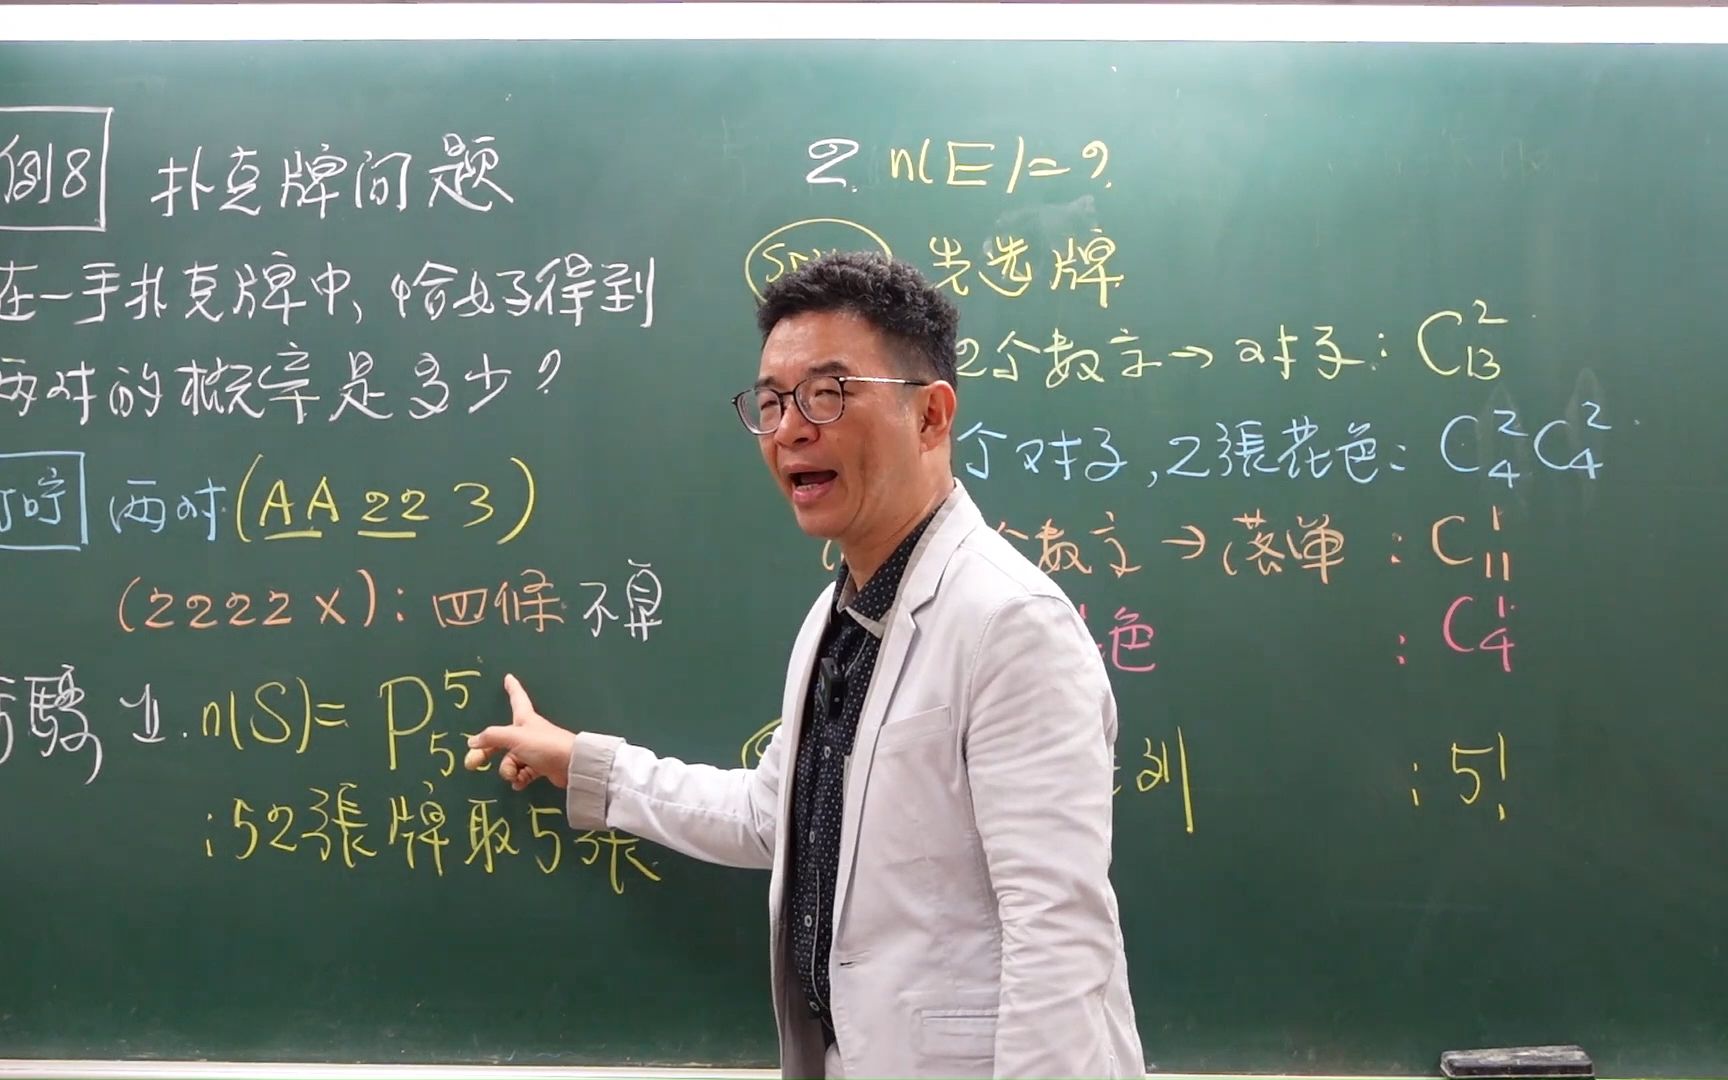 例8 扑克牌问题
在一手扑克牌中,恰好得到
两对的概率是多少?
叮咛 两对(AA 22 3)
(2222X):四條不算
步驟 1. n(S)= P 5 52
:52張牌取5张
2. n(E)=?
先选牌
2个数字→对子: C 2 13
个对子,2張花色: C 2 4 C 2 4
个数字→落单 : C 1 11
花色 : C 1 4
列 : 5!